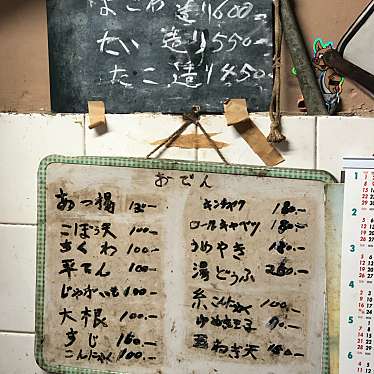 造り600-
たい造り550-
たこ造り450-
おでん
あつ揚 120-
ごぼう天 100-
ちくわ 100-
平てん 100-
じゃがいも 100-
大根 100-
すじ 160-
こんにゃく 100-
キンチャク 180-
ロールキャベツ 180-
うめやき 180-
湯どうふ 280-
糸こんにゃく 100-
玉ねぎ天
1
2
3
4
5
6